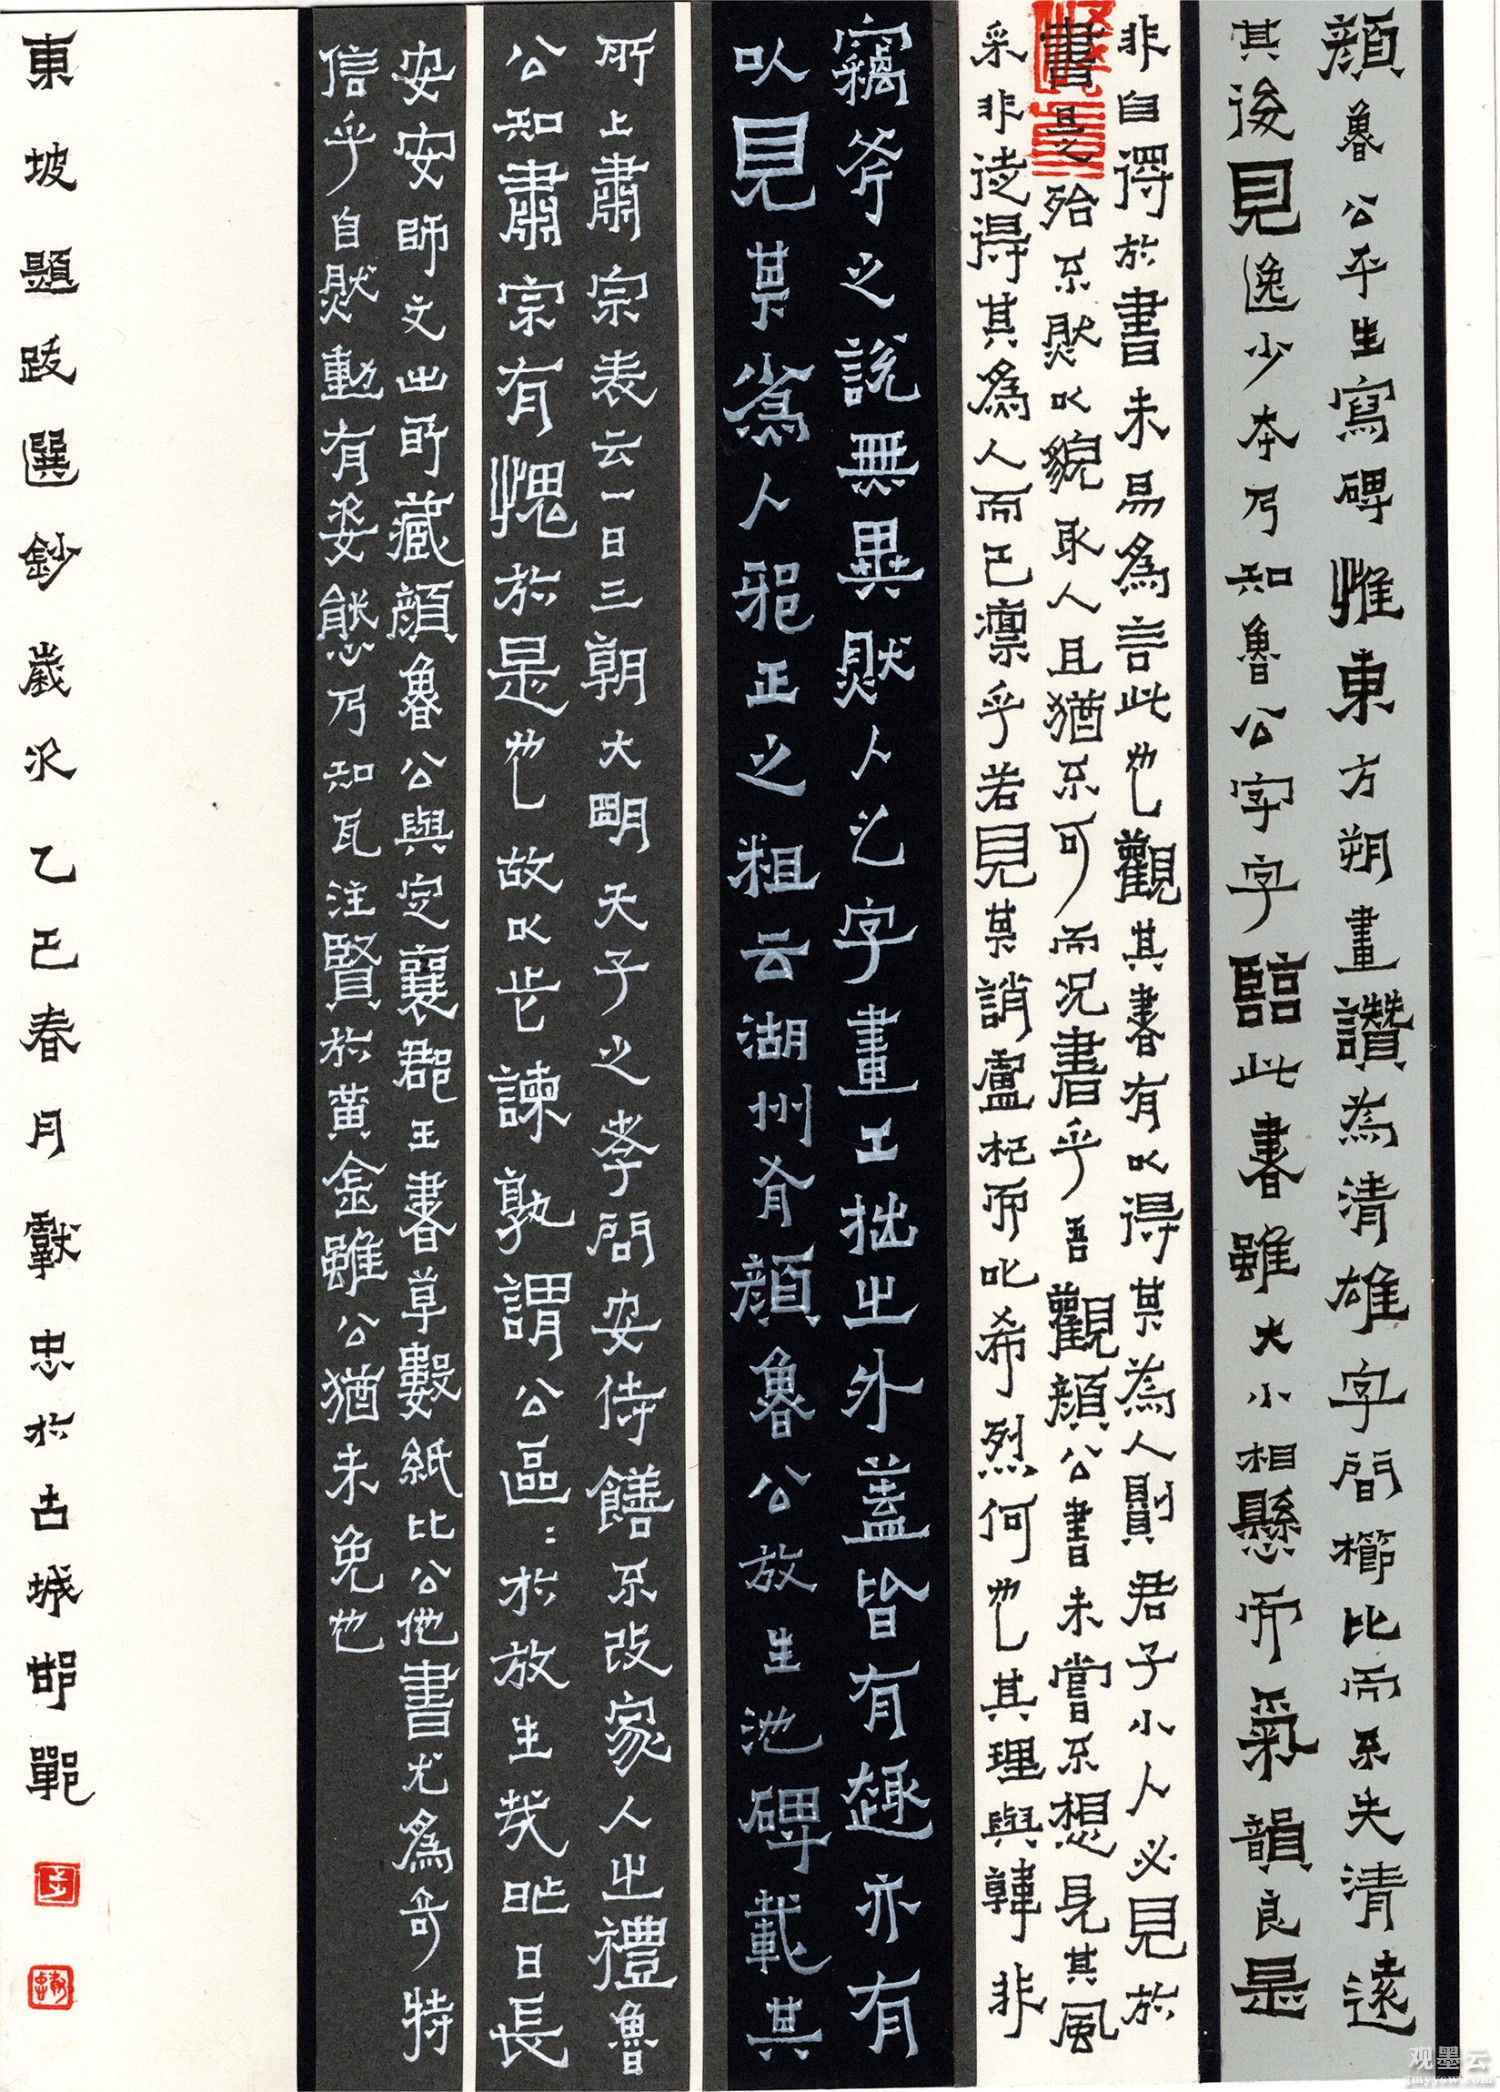 顏魯公平生寫碑惟東方朔畫讚為清雄字間櫛比而不失清遠
其後見逸少本乃知魯公字字臨此書雖大小相懸而氣韻良是
非自得於書未易為言此也觀其書有以得其為人則君子小人必見於
書是殆不然以貌取人且猶不可而況書乎吾觀顏公書未嘗不想見其風
采非徒得其為人而已凜乎若見其誚盧杞而叱希烈何也其理與韓非
竊斧之說無異然人之字畫工拙之外蓋皆有趣亦有
以見其為人邪正之粗云湖州有顏魯公放生池碑載其
所上肅宗表云一日三朝大明天子之孝問安侍膳不改家人之禮魯
公知肅宗有愧於是也故以此諫孰謂公區:於放生哉昨日長
安安師文出所藏顏魯公與定襄郡王書草數紙比公他書尤為奇特
信乎自然動有姿態乃知瓦注賢於黃金雖公猶未免也
東坡題跋選鈔歲次乙巳春月獻忠於古城邯鄲
观墨云
gmyysw.com